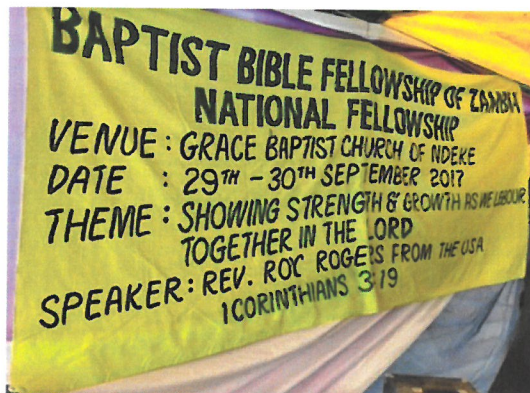 BAPTIST BIBLE FELLOWSHIP OF ZAMBIA
NATIONAL FELLOWSHIP
VENUE : GRACE BAPTIST CHURCH OF NDEKE
DATE : 29TH - 30TH SEPTEMBER 2017
THEME : SHOWING STRENGTH & GROWTH AS WE LABOUR
TOGETHER IN THE LORD
SPEAKER: REV. ROY ROGERS FROM THE USA
1 CORINTHIANS 3:19